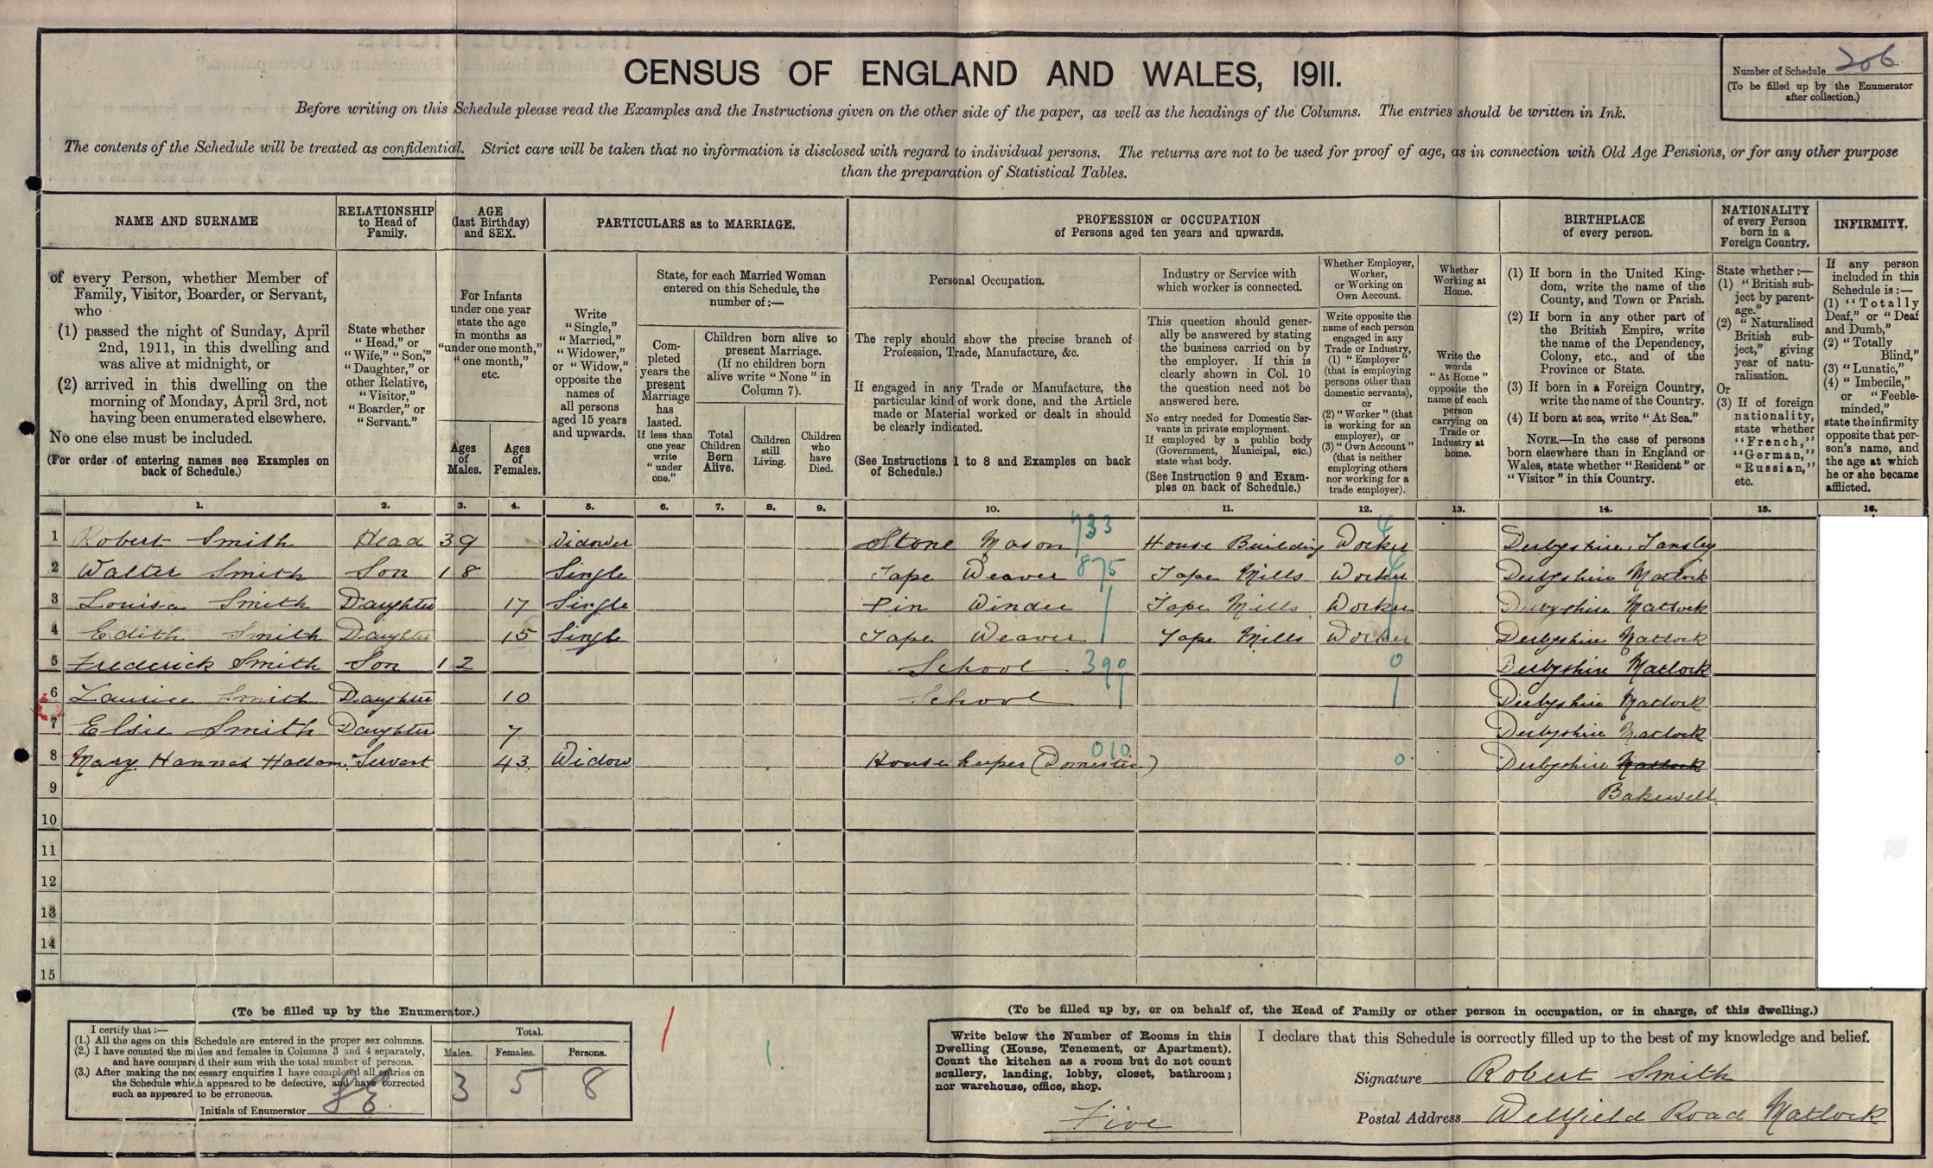 CENSUS OF ENGLAND AND WALES, 1911.
Number of Schedule 206
(To be filled up by the Enumerator
after collection.)
Before writing on this Schedule please read the Examples and the Instructions given on the other side of the paper, as well as the headings of the Columns. The entries should be written in Ink.
The contents of the Schedule will be treated as confidential. Strict care will be taken that no information is disclosed with regard to individual persons. The returns are not to be used for proof of age, as in connection with Old Age Pensions, or for any other purpose
than the preparation of Statistical Tables.
NAME AND SURNAME
of every Person, whether Member of
Family, Visitor, Boarder, or Servant,
who
(1) passed the night of Sunday, April
2nd, 1911, in this dwelling and
was alive at midnight, or
(2) arrived in this dwelling on the
morning of Monday, April 3rd, not
having been enumerated elsewhere.
No one else must be included.
(For order of entering names see Examples on
back of Schedule.)
RELATIONSHIP
to Head of
Family.
State whether
"Head," or
"Wife," "Son,"
"Daughter," or
other Relative,
"Visitor,"
"Boarder," or
"Servant."
AGE
(last Birthday)
and SEX.
For Infants
under one year
state the age
in months as
"under one month,"
"one month,"
etc.
Ages
of
Males.
Ages
of
Females.
PARTICULARS as to MARRIAGE.
Write
"Single,"
"Married,"
"Widower,"
or "Widow,"
opposite the
names of
all persons
aged 15 years
and upwards.
State, for each Married Woman
entered on this Schedule, the
number of:—
Com-
pleted
years the
present
Marriage
has
lasted.
If less than
one year
write
"under
one."
Children born alive to
present Marriage.
(If no children born
alive write "None" in
Column 7).
Total
Children
Born
Alive.
Children
still
Living.
Children
who
have
Died.
PROFESSION or OCCUPATION
of Persons aged ten years and upwards.
Personal Occupation.
The reply should show the precise branch of
Profession, Trade, Manufacture, &c.
If engaged in any Trade or Manufacture, the
particular kind of work done, and the Article
made or Material worked or dealt in should
be clearly indicated.
(See Instructions 1 to 8 and Examples on back
of Schedule.)
Industry or Service with
which worker is connected.
This question should gener-
ally be answered by stating
the business carried on by
the employer. If this is
clearly shown in Col. 10
the question need not be
answered here.
No entry needed for Domestic Ser-
vants in private employment.
If employed by a public body
(Government, Municipal, etc.)
state what body.
(See Instruction 9 and Exam-
ples on back of Schedule.)
Whether Employer,
Worker,
or Working on
Own Account.
Write opposite the
name of each person
engaged in any
Trade or Industry,
(1) "Employer"
(that is employing
persons other than
domestic servants),
or
(2) "Worker" (that
is working for an
employer), or
(3) "Own Account"
(that is neither
employing others
nor working for a
trade employer).
Whether
Working at
Home.
Write the
words
"At Home"
opposite the
name of each
person
carrying on
Trade or
Industry at
home.
BIRTHPLACE
of every person.
(1) If born in the United King-
dom, write the name of the
County, and Town or Parish.
(2) If born in any other part of
the British Empire, write
the name of the Dependency,
Colony, etc., and of the
Province or State.
(3) If born in a Foreign Country,
write the name of the Country.
(4) If born at sea, write "At Sea."
NOTE.—In the case of persons
born elsewhere than in England or
Wales, state whether "Resident" or
"Visitor" in this Country.
NATIONALITY
of every Person
born in a
Foreign Country.
State whether :—
(1) "British sub-
ject by parent-
age."
(2) "Naturalised
British sub-
ject," giving
year of natu-
ralisation.
Or
(3) If of foreign
nationality,
state whether
"French,"
"German,"
"Russian,"
etc.
INFIRMITY.
If any person
included in this
Schedule is :—
(1) "Totally
Deaf," or "Deaf
and Dumb,"
(2) "Totally
Blind,"
(3) "Lunatic,"
(4) "Imbecile,"
or "Feeble-
minded,"
state the infirmity
opposite that per-
son's name, and
the age at which
he or she became
afflicted.
1. 2. 3. 4. 5. 6. 7. 8. 9. 10. 11. 12. 13. 14. 15. 16.
1 Robert Smith Head 39 Widower Stone Mason 733 House Building Worker 4 Derbyshire, Tansley
2 Walter Smith Son 18 Single Tape Weaver 875 Tape Mills Worker 4 Derbyshire Matlock
3 Louisa Smith Daughter 17 Single Pin Winder Tape Mills Worker Derbyshire Matlock
4 Edith Smith Daughter 15 Single Tape Weaver Tape Mills Worker Derbyshire Matlock
5 Frederick Smith Son 12 School 390 0 Derbyshire Matlock
6 Smith Daughter 10 School Derbyshire Matlock
7 Elsie Smith Daughter 7 Derbyshire Matlock
8 Mary Hannah Hallam Servant 43 Widow House keeper (Domestic) 010 0 Derbyshire Matlock
9 Bakewell
10
11
12
13
14
15
(To be filled up by the Enumerator.)
I certify that :—
(1.) All the ages on this Schedule are entered in the proper sex columns.
(2.) I have counted the males and females in Columns 3 and 4 separately,
and have compared their sum with the total number of persons.
(3.) After making the necessary enquiries I have completed all entries on
the Schedule which appeared to be defective, and have corrected
such as appeared to be erroneous.
Initials of Enumerator
Total.
Males. Females. Persons.
3 5 8
(To be filled up by, or on behalf of, the Head of Family or other person in occupation, or in charge, of this dwelling.)
Write below the Number of Rooms in this
Dwelling (House, Tenement, or Apartment).
Count the kitchen as a room but do not count
scullery, landing, lobby, closet, bathroom;
nor warehouse, office, shop.
Five
I declare that this Schedule is correctly filled up to the best of my knowledge and belief.
Signature Robert Smith
Postal Address Wellfield Road Matlock